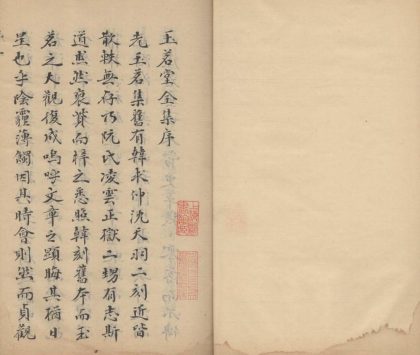 玉茗堂全集序
先玉茗集舊有韓求仲沈天羽二刻近皆
散軼無存乃阮氏凌雲正嶽二甥有志斯
道焦然裒貲而梓之悉照韓刻舊本而玉
茗之大觀復成嗚呼文章之顯晦其猶日
星也乎陰霾薄觸因其時會則然而貞觀